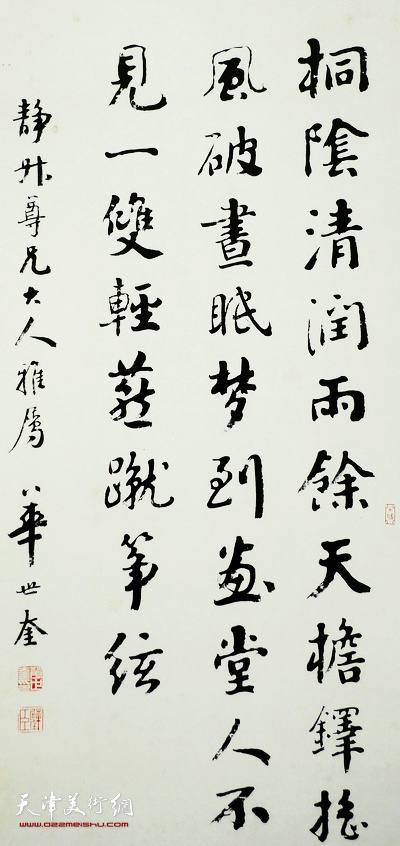 桐陰清潤雨餘天檐鐸摇
風破晝眠梦到画堂人不
見一雙輕燕蹴筝弦
静升尊兄大人雅属 華世奎
天津美術網
www.022meishu.com